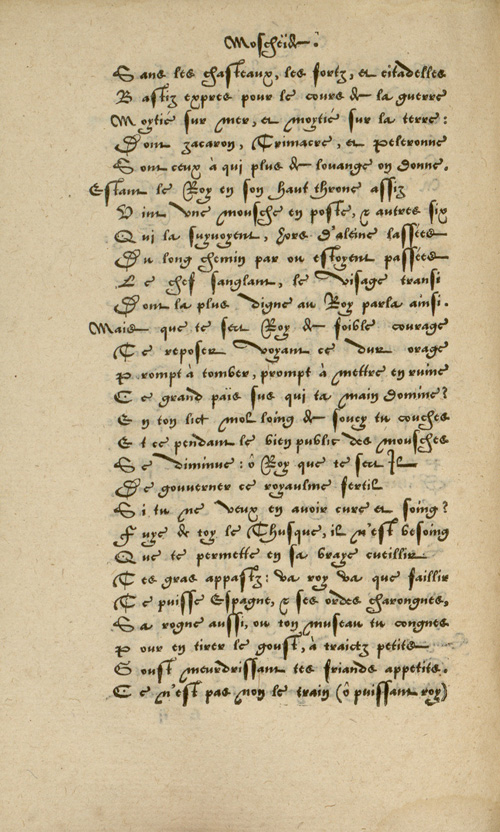 Moscheïde.
Sans les chasteaux, les fortz, et citadelles
Bastiz expres pour le cours de la guerre
Moytie sur mer, et moytie sur la terre:
Dont zacaron, Trimacre, et Peleronne
Sont ceux à qui plus de louange on donne.
Estant le Roy en son haut throne assiz
Vint vne mousche en poste, & autres six
Qui la suyuoyent, hors d'aleine lassées
Du long chemin par ou estoyent passées
Le chef sanglant, le visage transi
Dont la plus digne au Roy parla ainsi.
Mais que te sert Roy de foible courage
Te reposer voyant ce dur orage
Prompt à tomber, prompt à mettre en ruine
Ce grand païs sus qui ta main domine?
En ton lict mol loing de soucy tu couches
Et ce pendant le bien public des mousches
Se diminue: ô Roy que te sert Il
De gouuerner ce royaulme fertil
Si tu ne veux en auoir cure et soing?
Fuye de toy le Thusque, il n'est besoing
Que te permette en sa braye cueillir
Tes gras appastz: va roy va que faillir
Te puisse Espagne, & ses ordes charongnes,
Sa rogne aussi, ou ton museau tu congnes
Pour en tirer le goust, à traictz petits
Goust meurdrissant tes friands appetits.
Ce n'est pas non le train (ô puissant roy)